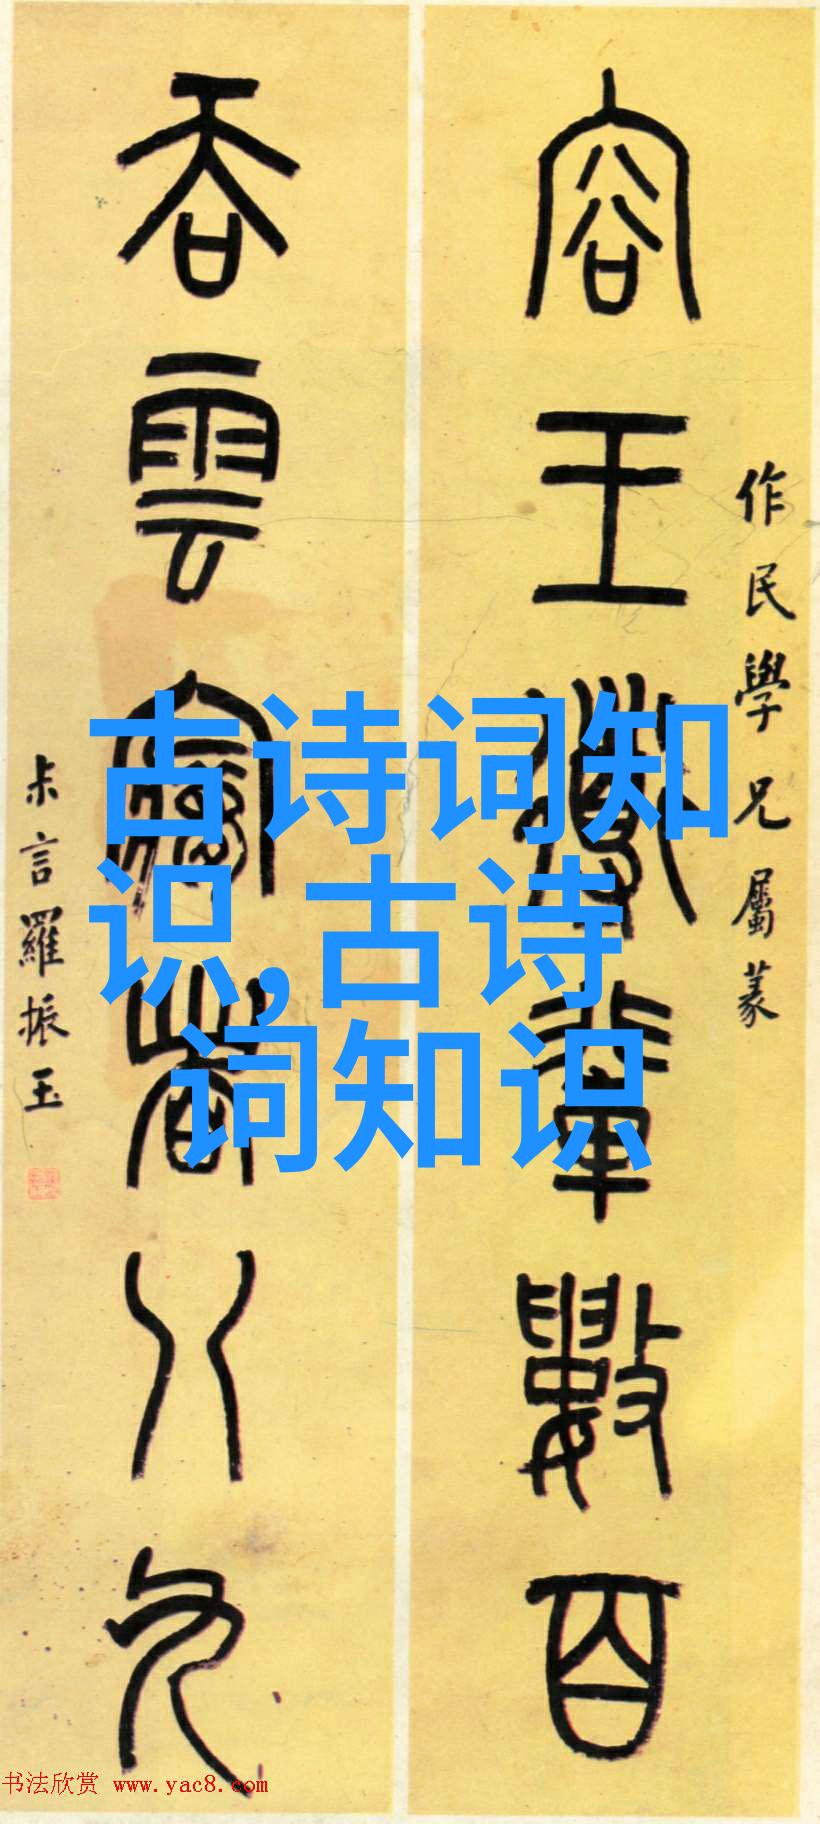 作民學兄屬篆
容王導輩數百
吞雲夢者八九
尗言羅振玉
古诗词知
识,古诗
词知识
书法欣赏 www.yac8.com